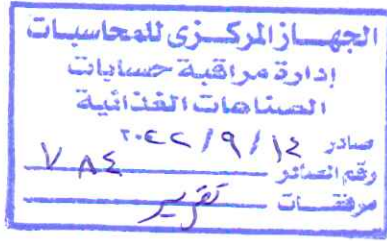 الجهاز المركزى للمحاسبات
إدارة مراقبة حسابات
الصناعات الغذائية
صادر ١٤ / ٩ / ٢٠٢٢
رقم الصادر ٧٨٤
مرفقات تقرير